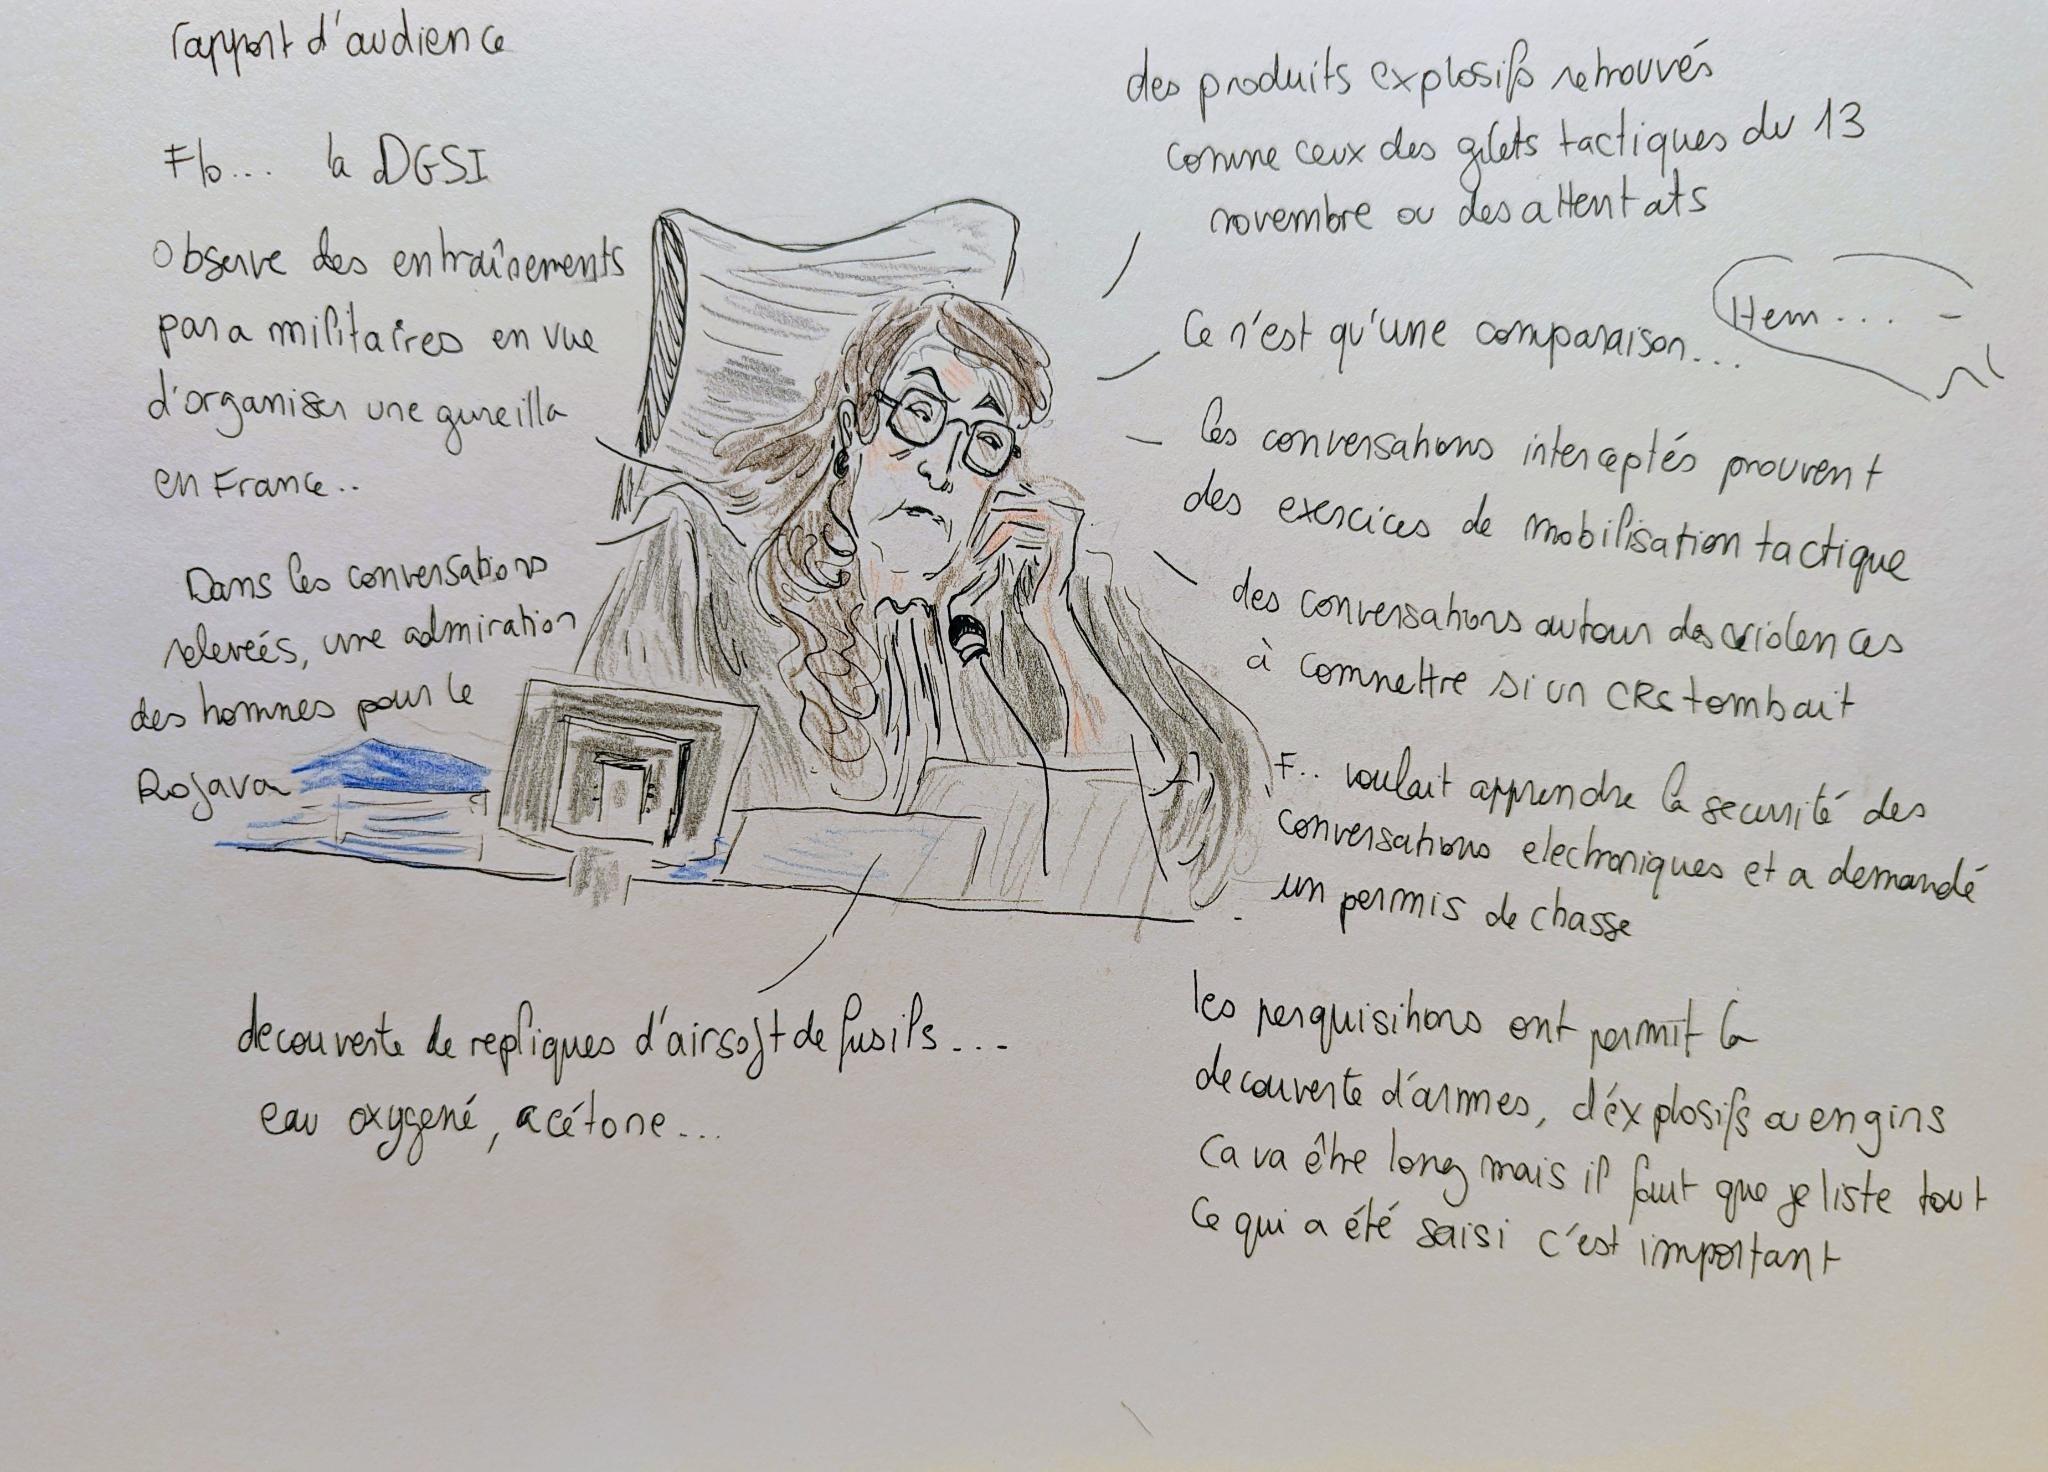 rapport d'audience
Flo... la DGSI
Observe des entraînements
para militaires en vue
d'organiser une gureilla
en France..
Dans les conversations
releveés, une admiration
des hommes pour le
Rojava
decouverte de repliques d'airsoft de fusils...
eau oxygené, acétone...
des produits explosifs retrouvés
comme ceux des gilets tactiques du 13
novembre ou des attentats
Ce n'est qu'une comparaison...
Hem...
les conversations interceptés prouvent
des exercices de mobilisation tactique
des conversations autour des violences
à commettre si un CRS tombait
F.. voulait apprendre la securité des
conversations electroniques et a demandé
un permis de chasse
les perquisitions ont permit la
decouverte d'armes, d'éxplosifs engins
Ca va être long mais il faut que je liste tout
Ce qui a été saisi c'est important